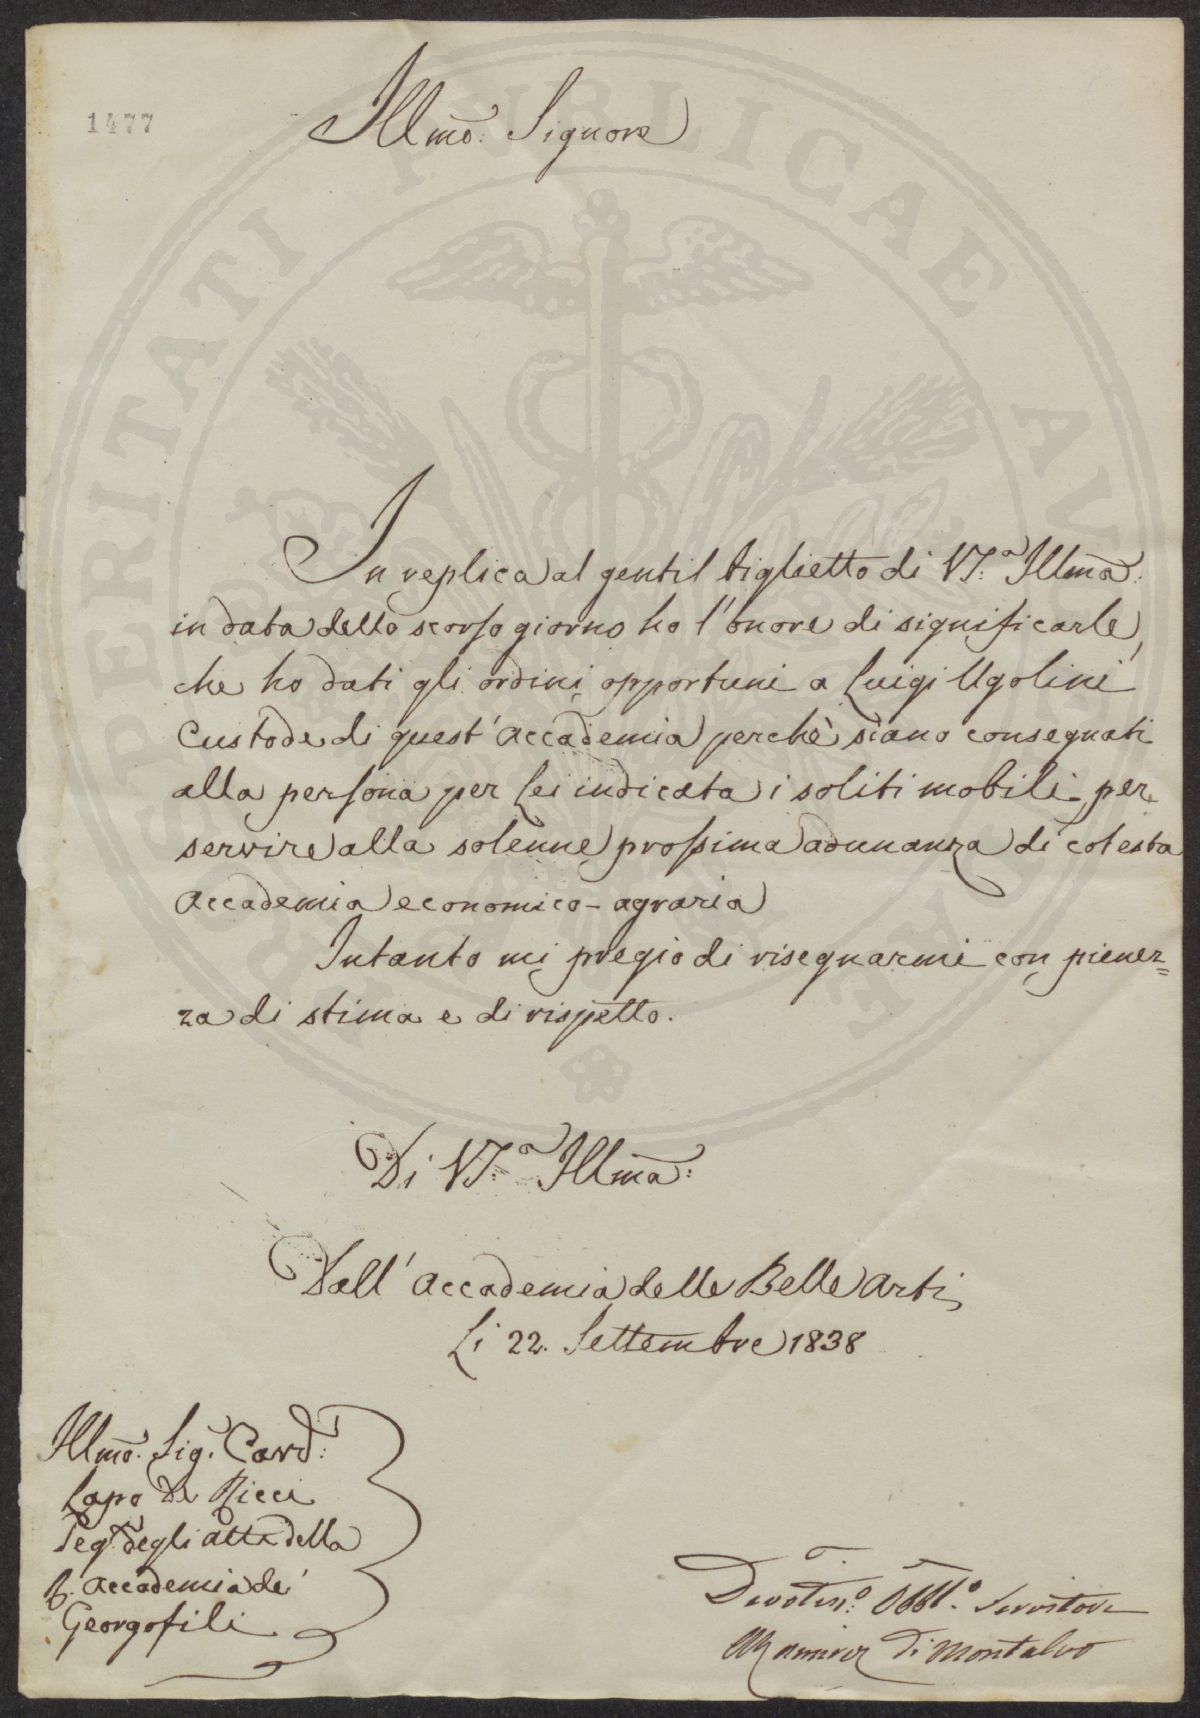 1477
Illmo: Signore
PROSPERITATI PVBLICAE AVGENDAE
In replica al gentil biglietto di VS.a Illma:
in data dello scorso giorno ho l'onore di significarle,
che ho dati gli ordini opportuni a Luigi Ugolini
Custode di quest'Accademia perchè siano consegnati
alla persona per Lei indicata i soliti mobili per
servire alla solenne prossima adunanza di cotesta
Accademia economico-agraria
Intanto mi pregio di risegnarmi con pienez=
za di stima e di rispetto.
Di VS.a Illma:
Dall'Accademia delle Belle Arti
Li 22. Settembre 1838
Illmo. Sig. Cav.
Lapo de Ricci
Seg. degli Atti della
R. Accademia de'
Georgofili
Devotis:o Obbl.o Servitore
Ramirez di Montalvo